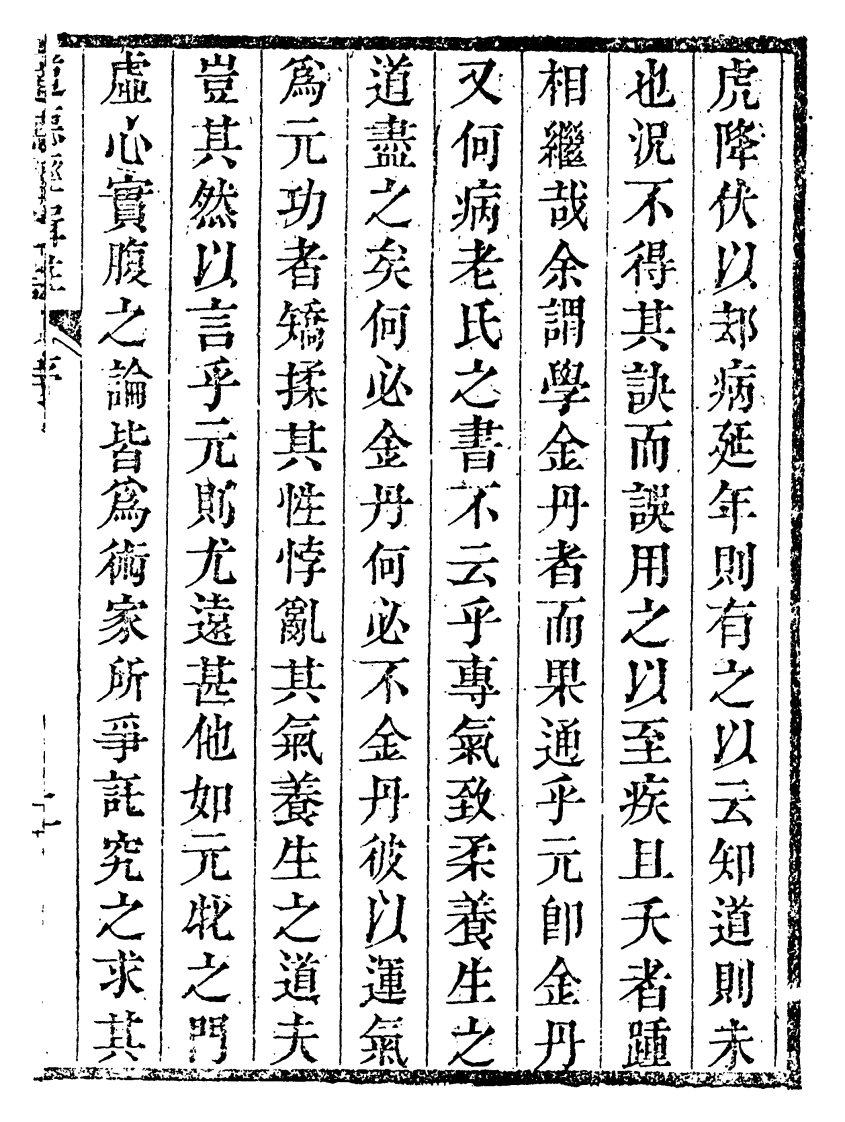 虎降伏以却病延年則有之以云知道則未
也況不得其訣而誤用之以至疾且夭者踵
相繼哉余謂學金丹者而果通乎元卽金丹
又何病老氏之書不云乎專氣致柔養生之
道盡之矣何必金丹何必不金丹彼以運氣
爲元功者矯揉其性悖亂其氣養生之道夫
豈其然以言乎元則尤遠甚他如元牝之門
虛心實腹之論皆爲術家所爭託究之求其